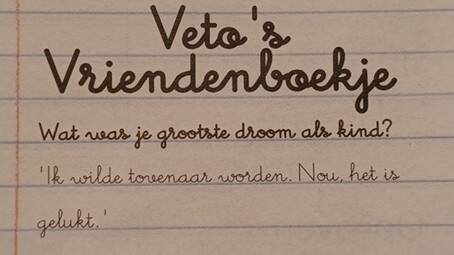 Veto's
Vriendenboekje
Wat was je grootste droom als kind?
'Ik wilde tovenaar worden. Nou, het is
gelukt.'